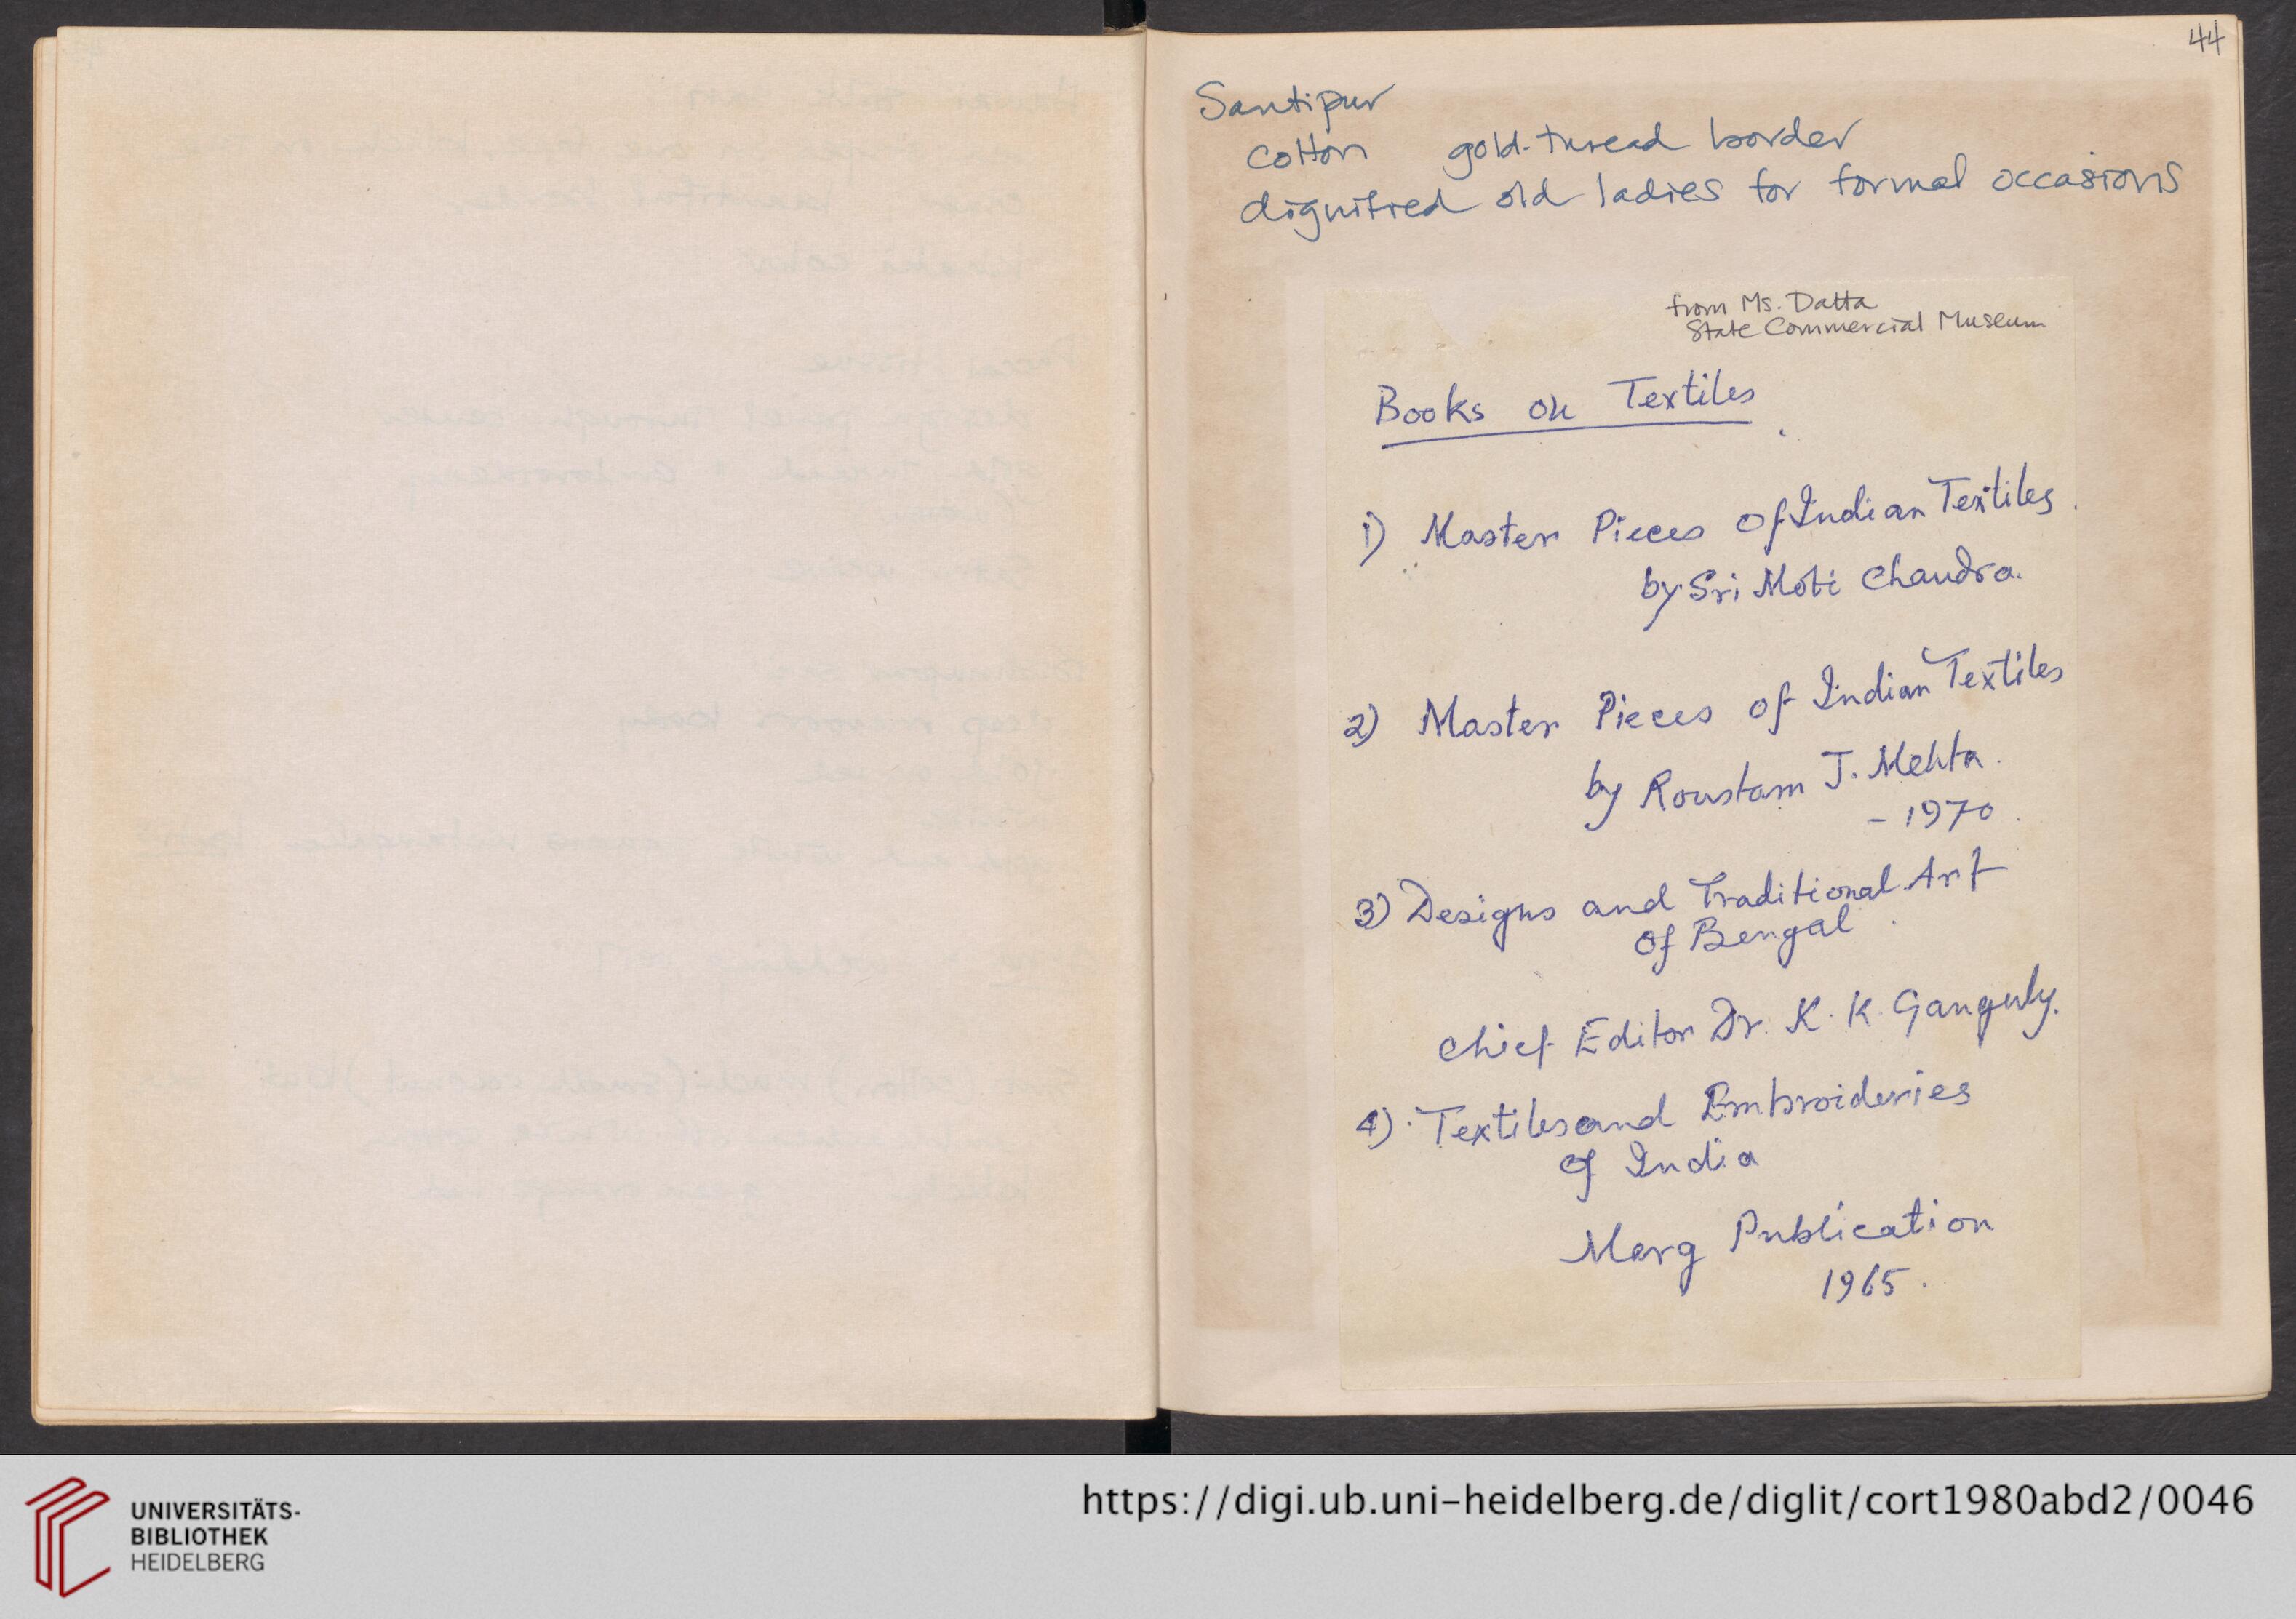 44
Santipur
cotton gold-thread border
dignified old ladies for formal occasions
from Ms. Datta
State Commercial Museum
Books on Textiles
1) Master Pieces Of Indian Textiles.
by Sri Moti Chandra.
2) Master Pieces of Indian Textiles
by Roustam J. Mehta.
- 1970.
3) Designs and Traditional Art
of Bengal.
Chief Editor Dr. K. K. Ganguly.
4). Textiles and Embroideries
of India
Marg Publication
1965.
UNIVERSITÄTS-
BIBLIOTHEK
HEIDELBERG
https://digi.ub.uni-heidelberg.de/diglit/cort1980abd2/0046